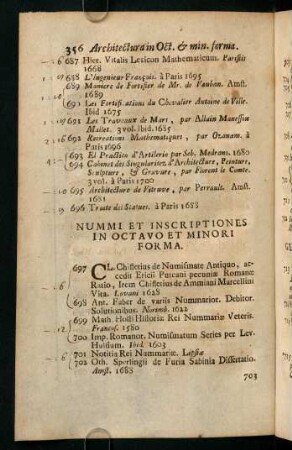 356 Architectura in Oct. & min. forma.
687 Hier. Vitalis Lexicon Mathematicum. Parisiis
1668
688 L'Ingenieur Français. à Paris 1695
689 Maniere de Fortefier de Mr. de Vauban. Amst.
1689
690 Les Fortifications du Chevalier Antoine de Ville.
Ibid 1675
691 Les Travaux de Mars, par Allain Manesson
Mallet. 3 vol. Ibid. 1685
692 Recreations Mathematiques, par Ozanam. à
Paris 1696
693 El Practico d'Artilerio par Seb. Medrano. 1680
694 Cabinet des Singularitez d'Architecture, Peinture,
Sculpture, & Gravure, par Florent le Comte.
3 vol. à Paris 1700
695 Architecture de Vitruve, par Perrault. Amst.
1681
696 Traité des Statues. à Paris 1688
NUMMI ET INSCRIPTIONES
IN OCTAVO ET MINORI
FORMA.
697 CL. Chifletius de Numismate Antiquo, ac-
cedit Ericii Puteani pecuniæ Romanæ
Ratio, Item Chifletius de Ammiani Marcellini
Vita. Lovanii 1628
698 Ant. Faber de variis Nummarior. Debitor.
Solutionibus. Norimb. 1622
699 Math. Hosti Historiæ Rei Nummariæ Veteris.
Francof. 1580
700 Imp. Romanor. Numismatum Series per Lev-
Hulsium. Ibid. 1603
701 Notitia Rei Nummariæ. Lipsiæ
702 Oth. Sperlingii de Furia Sabinia Dissertatio.
Amst. 1688
703